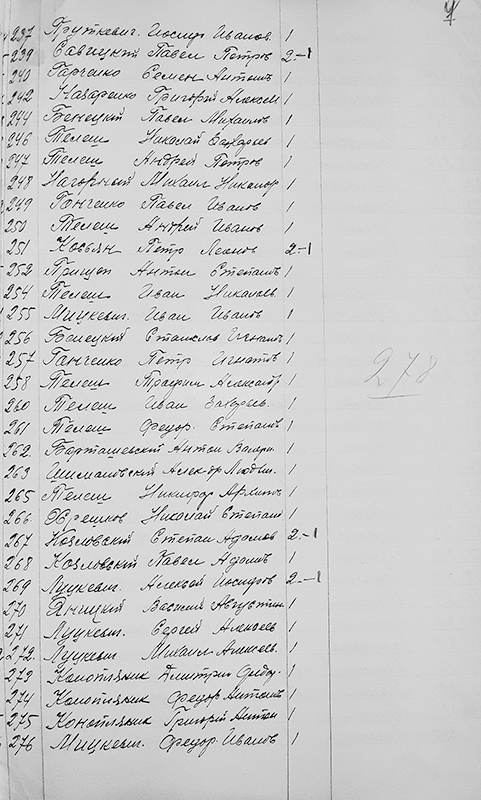 4
237 Пруткевич. Иосиф Иванов. 1
239 Савицкий Павел Петров 2.-1
240 Гарченко Семен Антонъ 1
242 Назаренко Григорий Алексеев 1
244 Бенецкий Павел Михаилов 1
246 Телеш Николай Захарьев 1
247 Телеш Андрей Петров 1
248 Нагорный Михаил Никанор 1
249 Ганченко Павел Иванов 1
250 Телеш Андрей Иванов 1
251 Косьян Петр Леонов 2.-1
252 Прищеп Антон Степанъ 1
254 Телеш Иван Николаев. 1
255 Мицкевич. Иван Иванов 1
256 Болецкий Станислав Игнатъ 1
257 Ганченко Петр Игнатов 1
258 Телеш Трафим Александр. 1
278
260 Телеш Иван Захарьев. 1
261 Телеш Федор. Степанов 1
262. Барташевский Антон 1
263 Алек-др 1
265 Телеш Никифор Архипов 1
266. Орешков Николай Степан 1
267 Козловский Степан Адамов 2.-1
268 Козловский Павел Адамъ 1
269 Луцкевич. Алексей Иосифов 2.-1
270 Яницкий Василий Августин. 1
271 Луцкевич. Сергей Алексеев 1
272. Луцкевич Михаил Алексеев. 1
273 Конопляник Дмитрий Федор. 1
274 Конопляник Федор Антонъ 1
275 Конопляник Григорий Антон 1
276 Мицкевич. Федор. Иванов 1